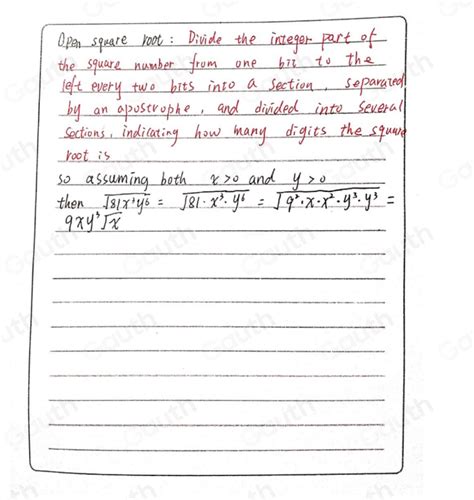 Open square root : Divide the integer part of
the square number from one bit to the
left every two bits into a section, separated
by an apostrophe, and divided into several
sections, indicating how many digits the square
root is
so assuming both x>0 and y>0
then √81x³y⁶ = √81·x³·y⁶ = √9²·x·x²·y³·y³ =
9xy³√x